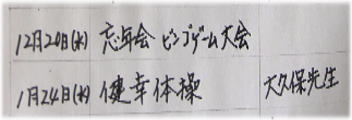 12月20日(水) 忘年会 ビンゴゲーム大会
1月24日(水) 健幸体操 大久保先生